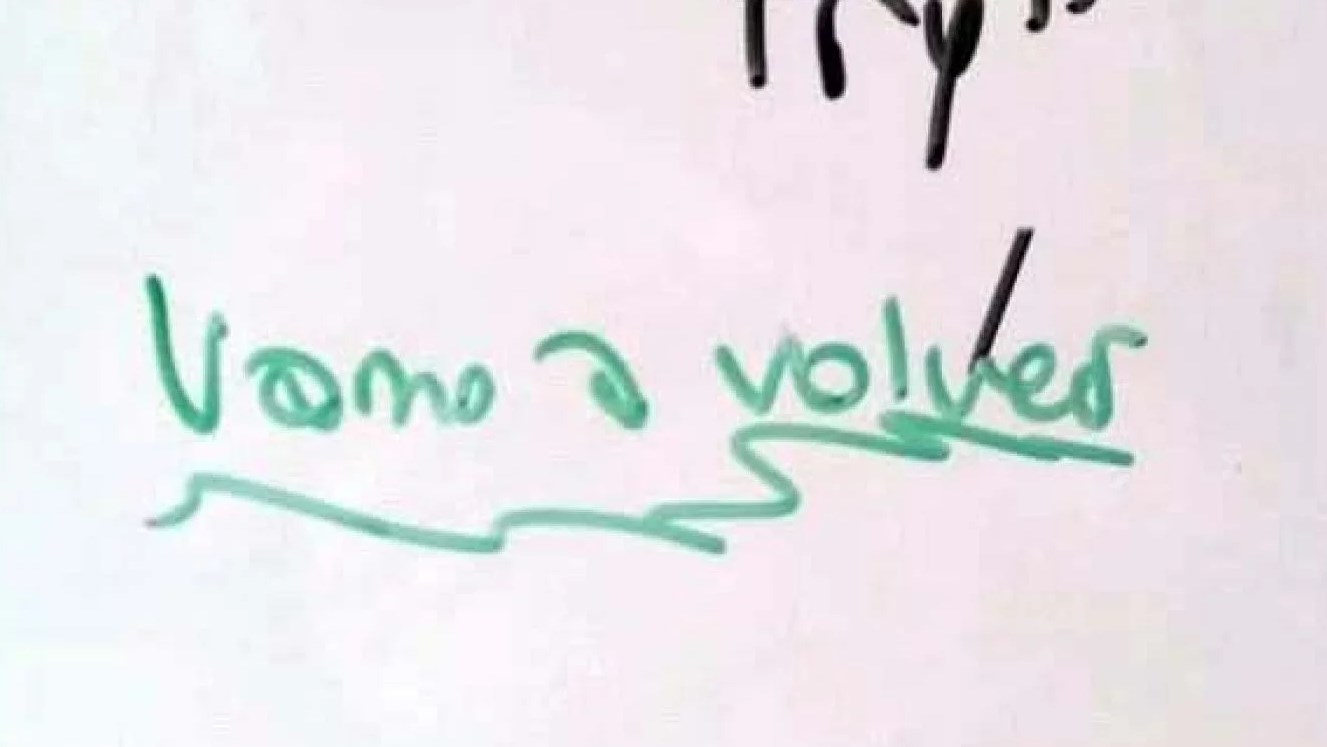 Vamo a volver